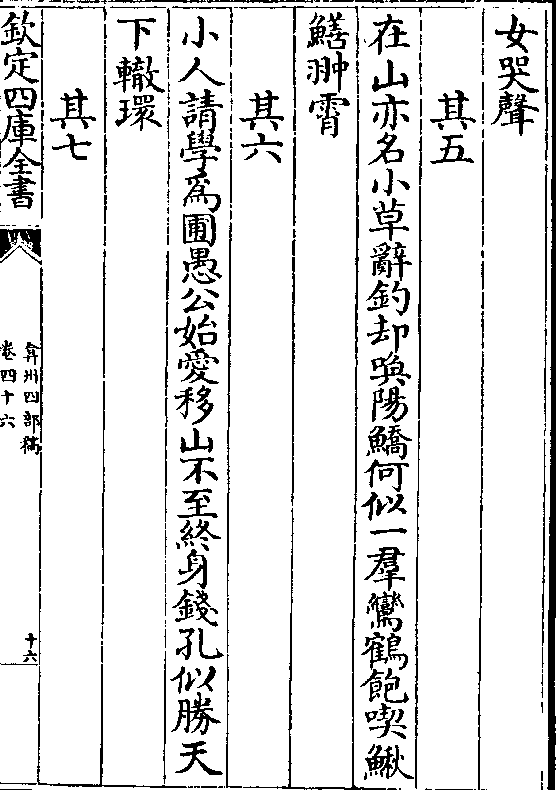 女哭聲
其五
在山亦名小草辭釣却喚陽鱎何似一羣鸞鶴飽喫鰍
鱔翀霄
其六
小人請學為圃愚公始愛移山不至終身錢孔似勝天
下轍環
其七
欽定四庫全書
弇州四部稿
卷四十六
十六